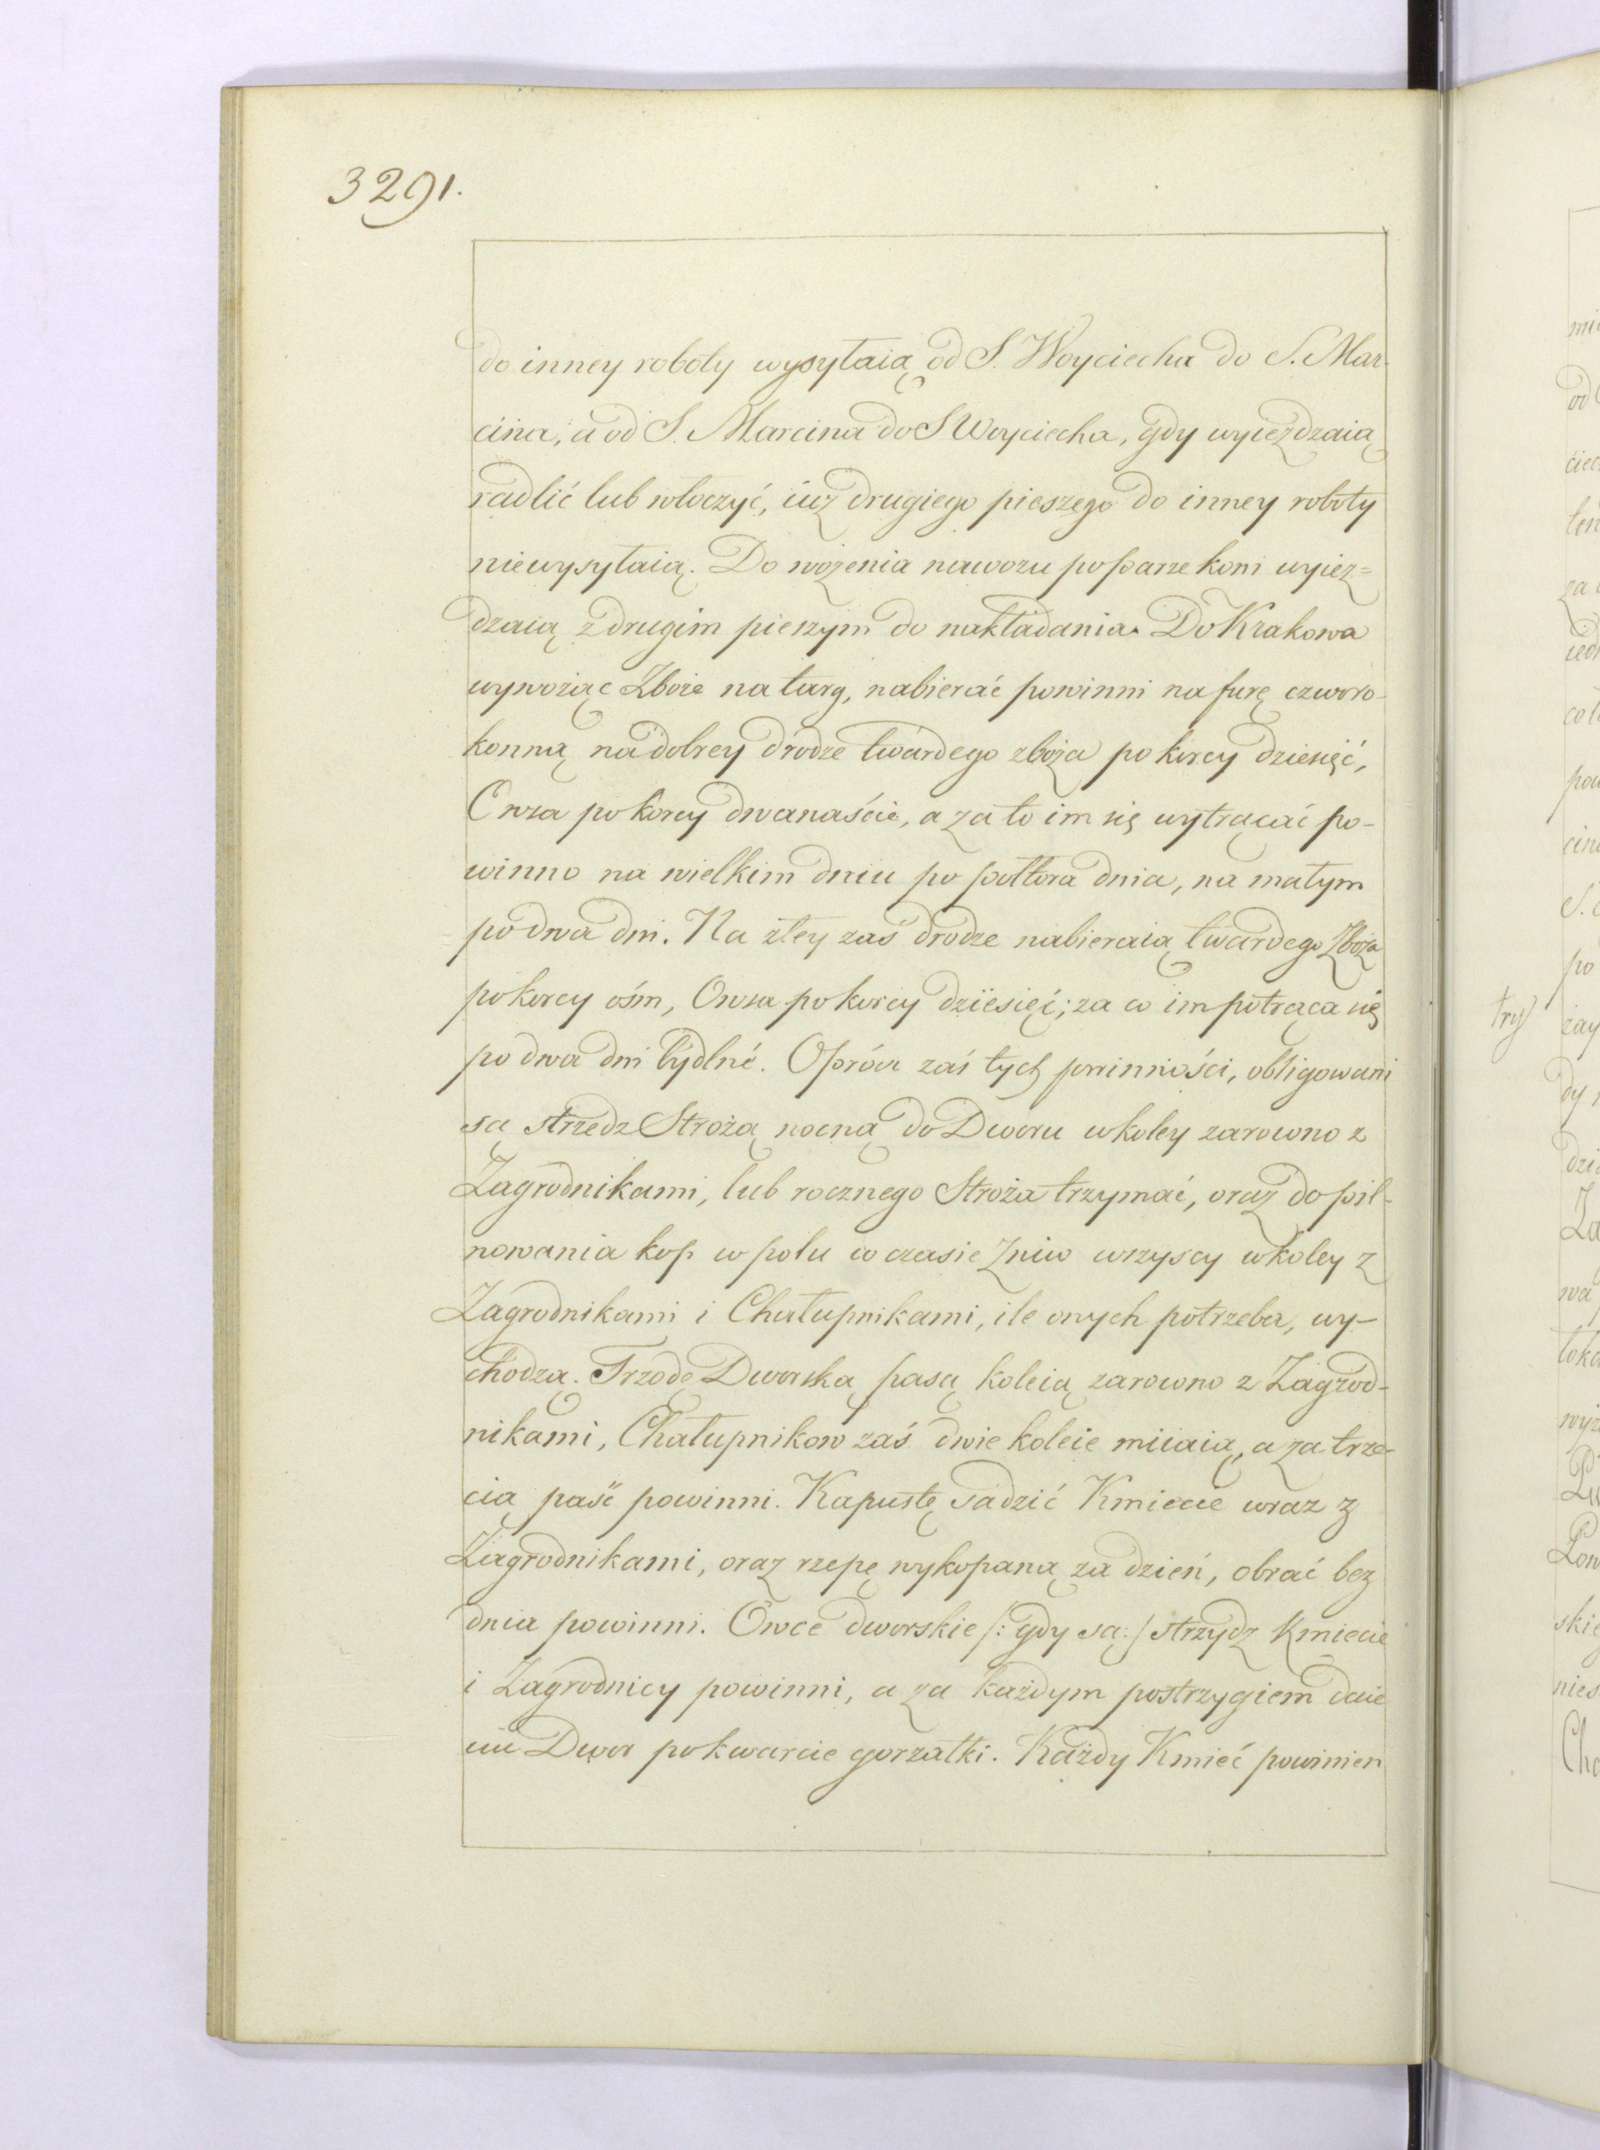 3291.
do inney roboty wysyłaią od S. Woyciecha do S. Mar-
cina, a od S. Marcina do S Woyciecha, gdy wyieżdzaią
radlić lub włoczyć, iuż drugiego pieszego do inney roboty
niewysyłaią. Do wożenia nawozu po parze koni wyież=
dzaią z drugim pieszym do nakładania. Do Krakowa
wywożąc Zboże na targ, nabierać powinni na furę czworo-
konną na dobrey drodze twardego zboża po korcy dziesięć,
Owsa po korcy dwanaście, a za to im się wytrącać po-
winno na wielkim dniu po połtora dnia, na małym
po dwa dni. Na złey zaś drodze nabieraią twardego Zboża
po korcy ośm, Owsa po korcy dziesięć; za co im potrąca się
po dwa dni tydlne. Oprócz zaś tych powinności, obligowani
są strzedz Strożą nocną do Dworu w koley zarowno z
Zagrodnikami, lub rocznego Stroża trzymać, oraz do pil-
nowania kop w polu w czasie żniw wszyscy w koley z
Zagrodnikami i Chałupnikami, ile onych potrzeba, wy-
chodzą. Trzodę Dworską pasą koleią zarowno z Zagrod-
nikami, Chałupnikow zaś dwie koleie miiaią, a za trze-
cią paść powinni. Kapustę sadzić Kmiecie wraz z
Zagrodnikami, oraz rzepę wykopaną za dzień, obrać bez
dnia powinni. Owce dworskie /: gdy są :/ strzydz Kmiecie
i Zagrodnicy powinni, a za każdym postrzygiem daie
im Dwor po kwarcie gorzałki. Każdy Kmieć powinien
try